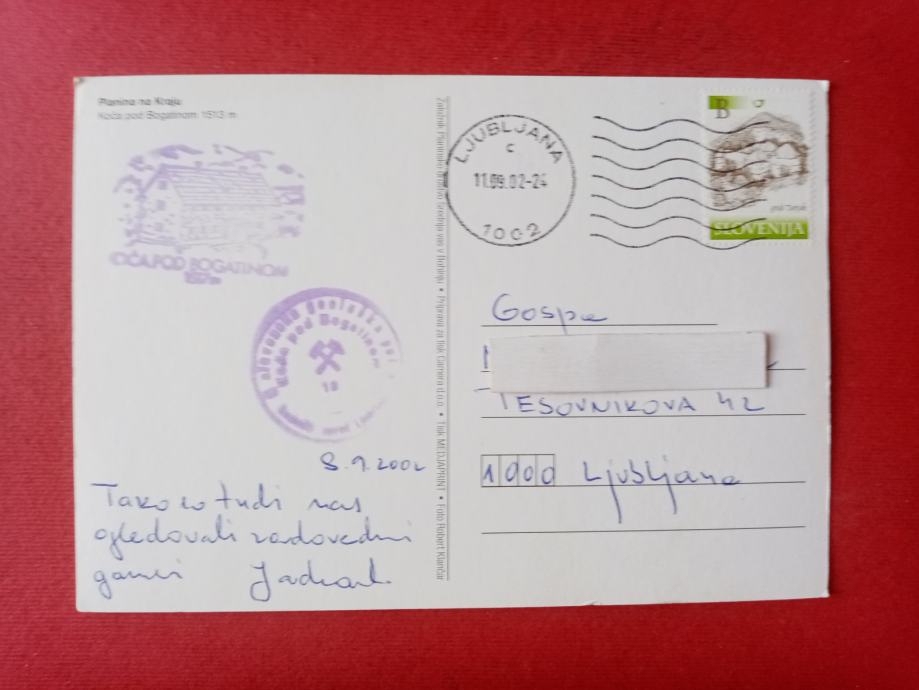 Planina na Kraju
Koča pod Bogatinom 1513 m
KOČA POD BOGATINOM
slovenska geološka pot
Koča pod Bogatinom
10
8.9.2002
Tako so tudi nas
ogledovali radovedni
gamsi
Založnik Planinsko društvo Srednja vas v Bohinju • Priprava za tisk Camera d.o.o. • Tisk MEDIAPRINT • Foto Robert Klančar
LJUBLJANA
C
11.09.02-24
1002
B
SLOVENIJA
Gospa
TESOVNIKOVA 42
1000 Ljubljana